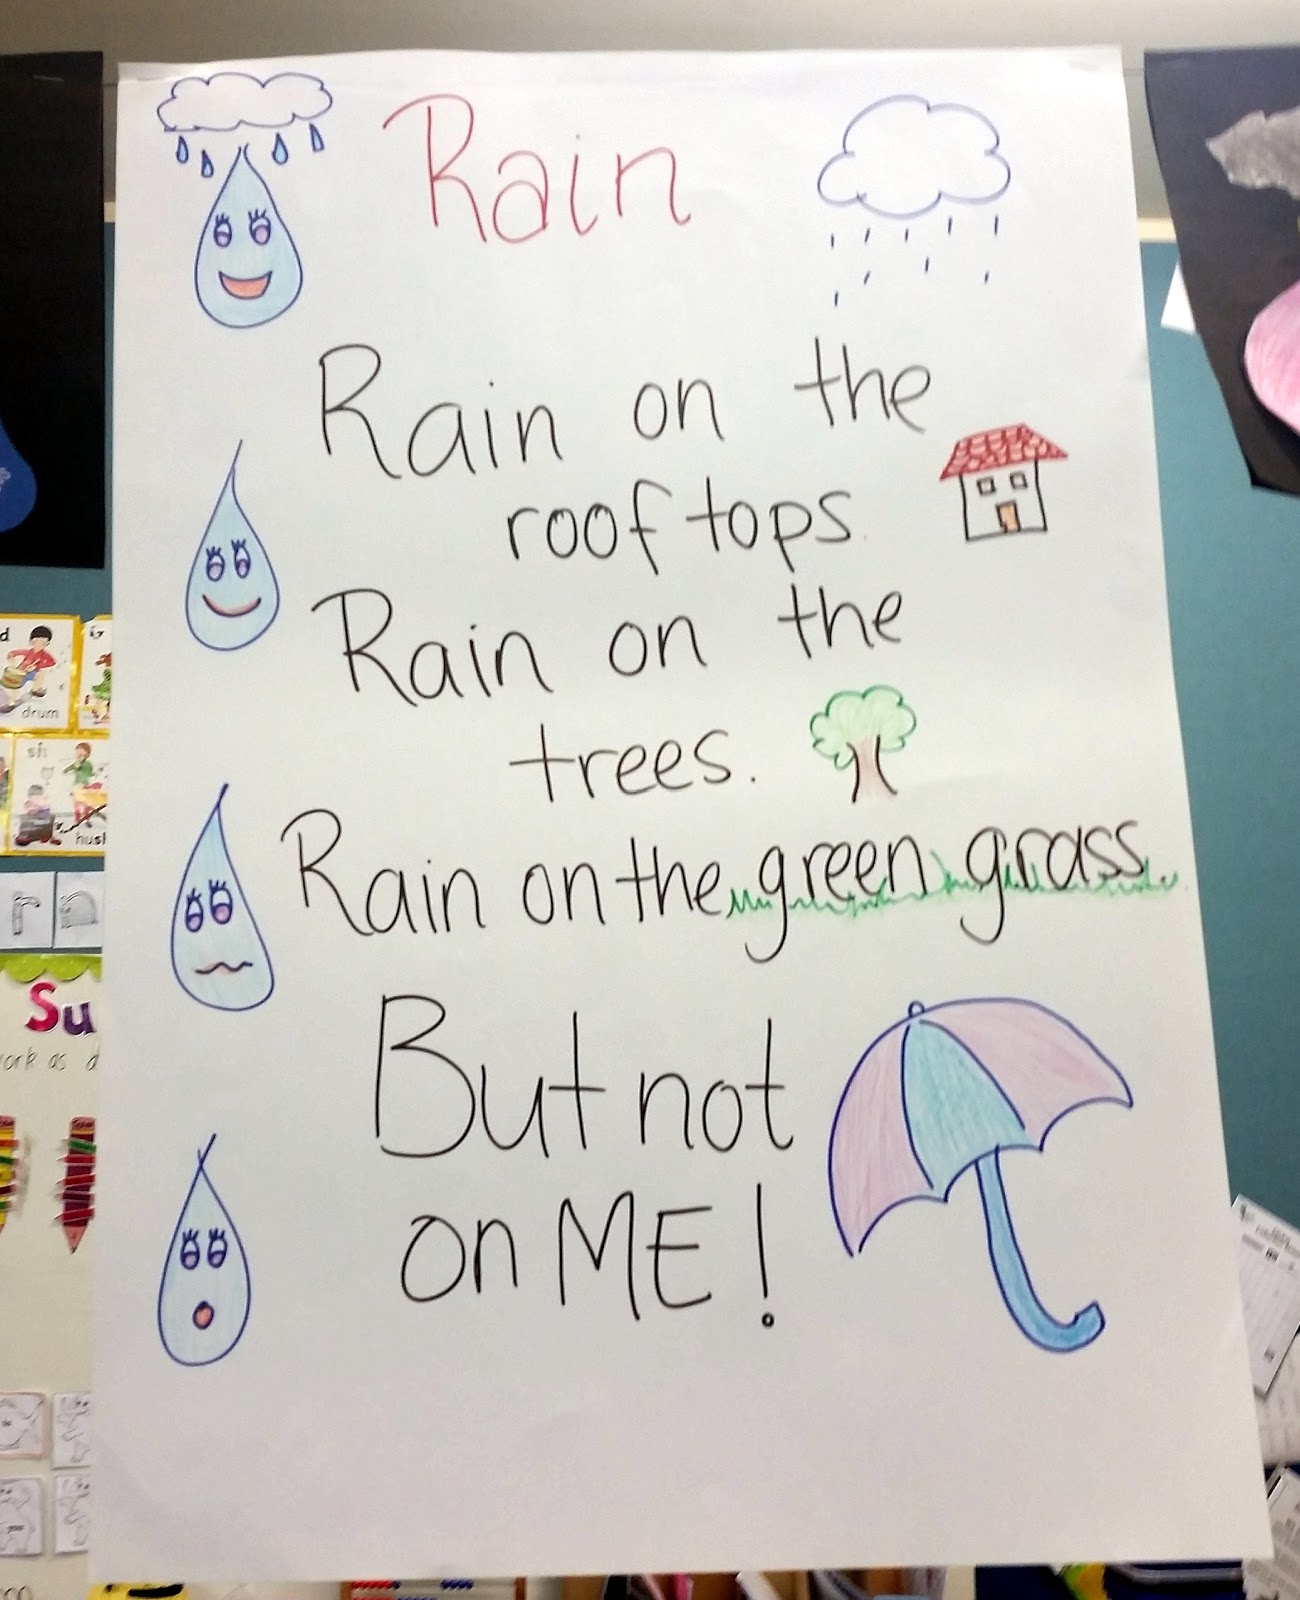 Rain
Rain on the
rooftops.
Rain on the
trees.
Rain on the green grass.
But not
on ME!
drum
sh
Su
as
r n